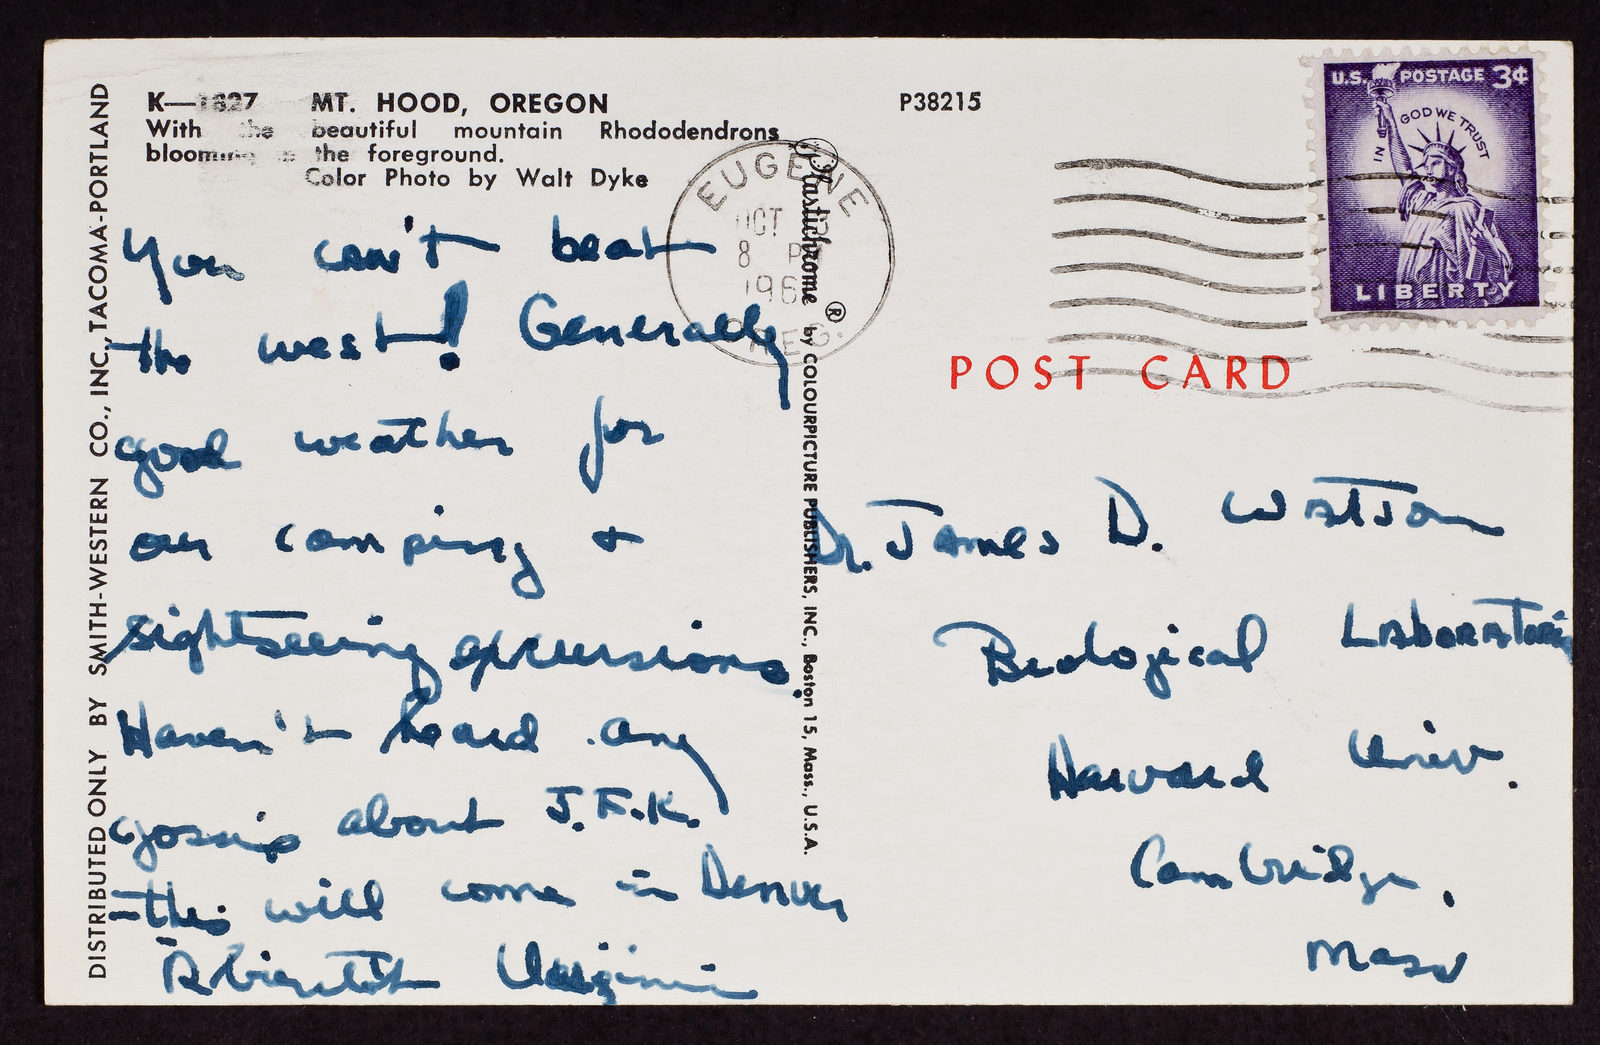 K—1827 MT. HOOD, OREGON
With the beautiful mountain Rhododendrons
blooming in the foreground.
Color Photo by Walt Dyke
P38215
DISTRIBUTED ONLY BY SMITH-WESTERN CO., INC., TACOMA-PORTLAND
Plastichrome ® by COLOURPICTURE PUBLISHERS, INC., Boston 15, Mass., U.S.A.
EUGENE
OCT
8 PM
196
OREG.
U.S. POSTAGE 3¢
IN GOD WE TRUST
LIBERTY
POST CARD
You can't beat
the west! Generally
good weather for
our camping &
sightseeing excursions.
Haven't heard any
gossip about J.F.K.
- this will come in Denver
Virginia
Dr. James D. Watson
Biological Laboratories
Harvard Univ.
Cambridge,
Mass